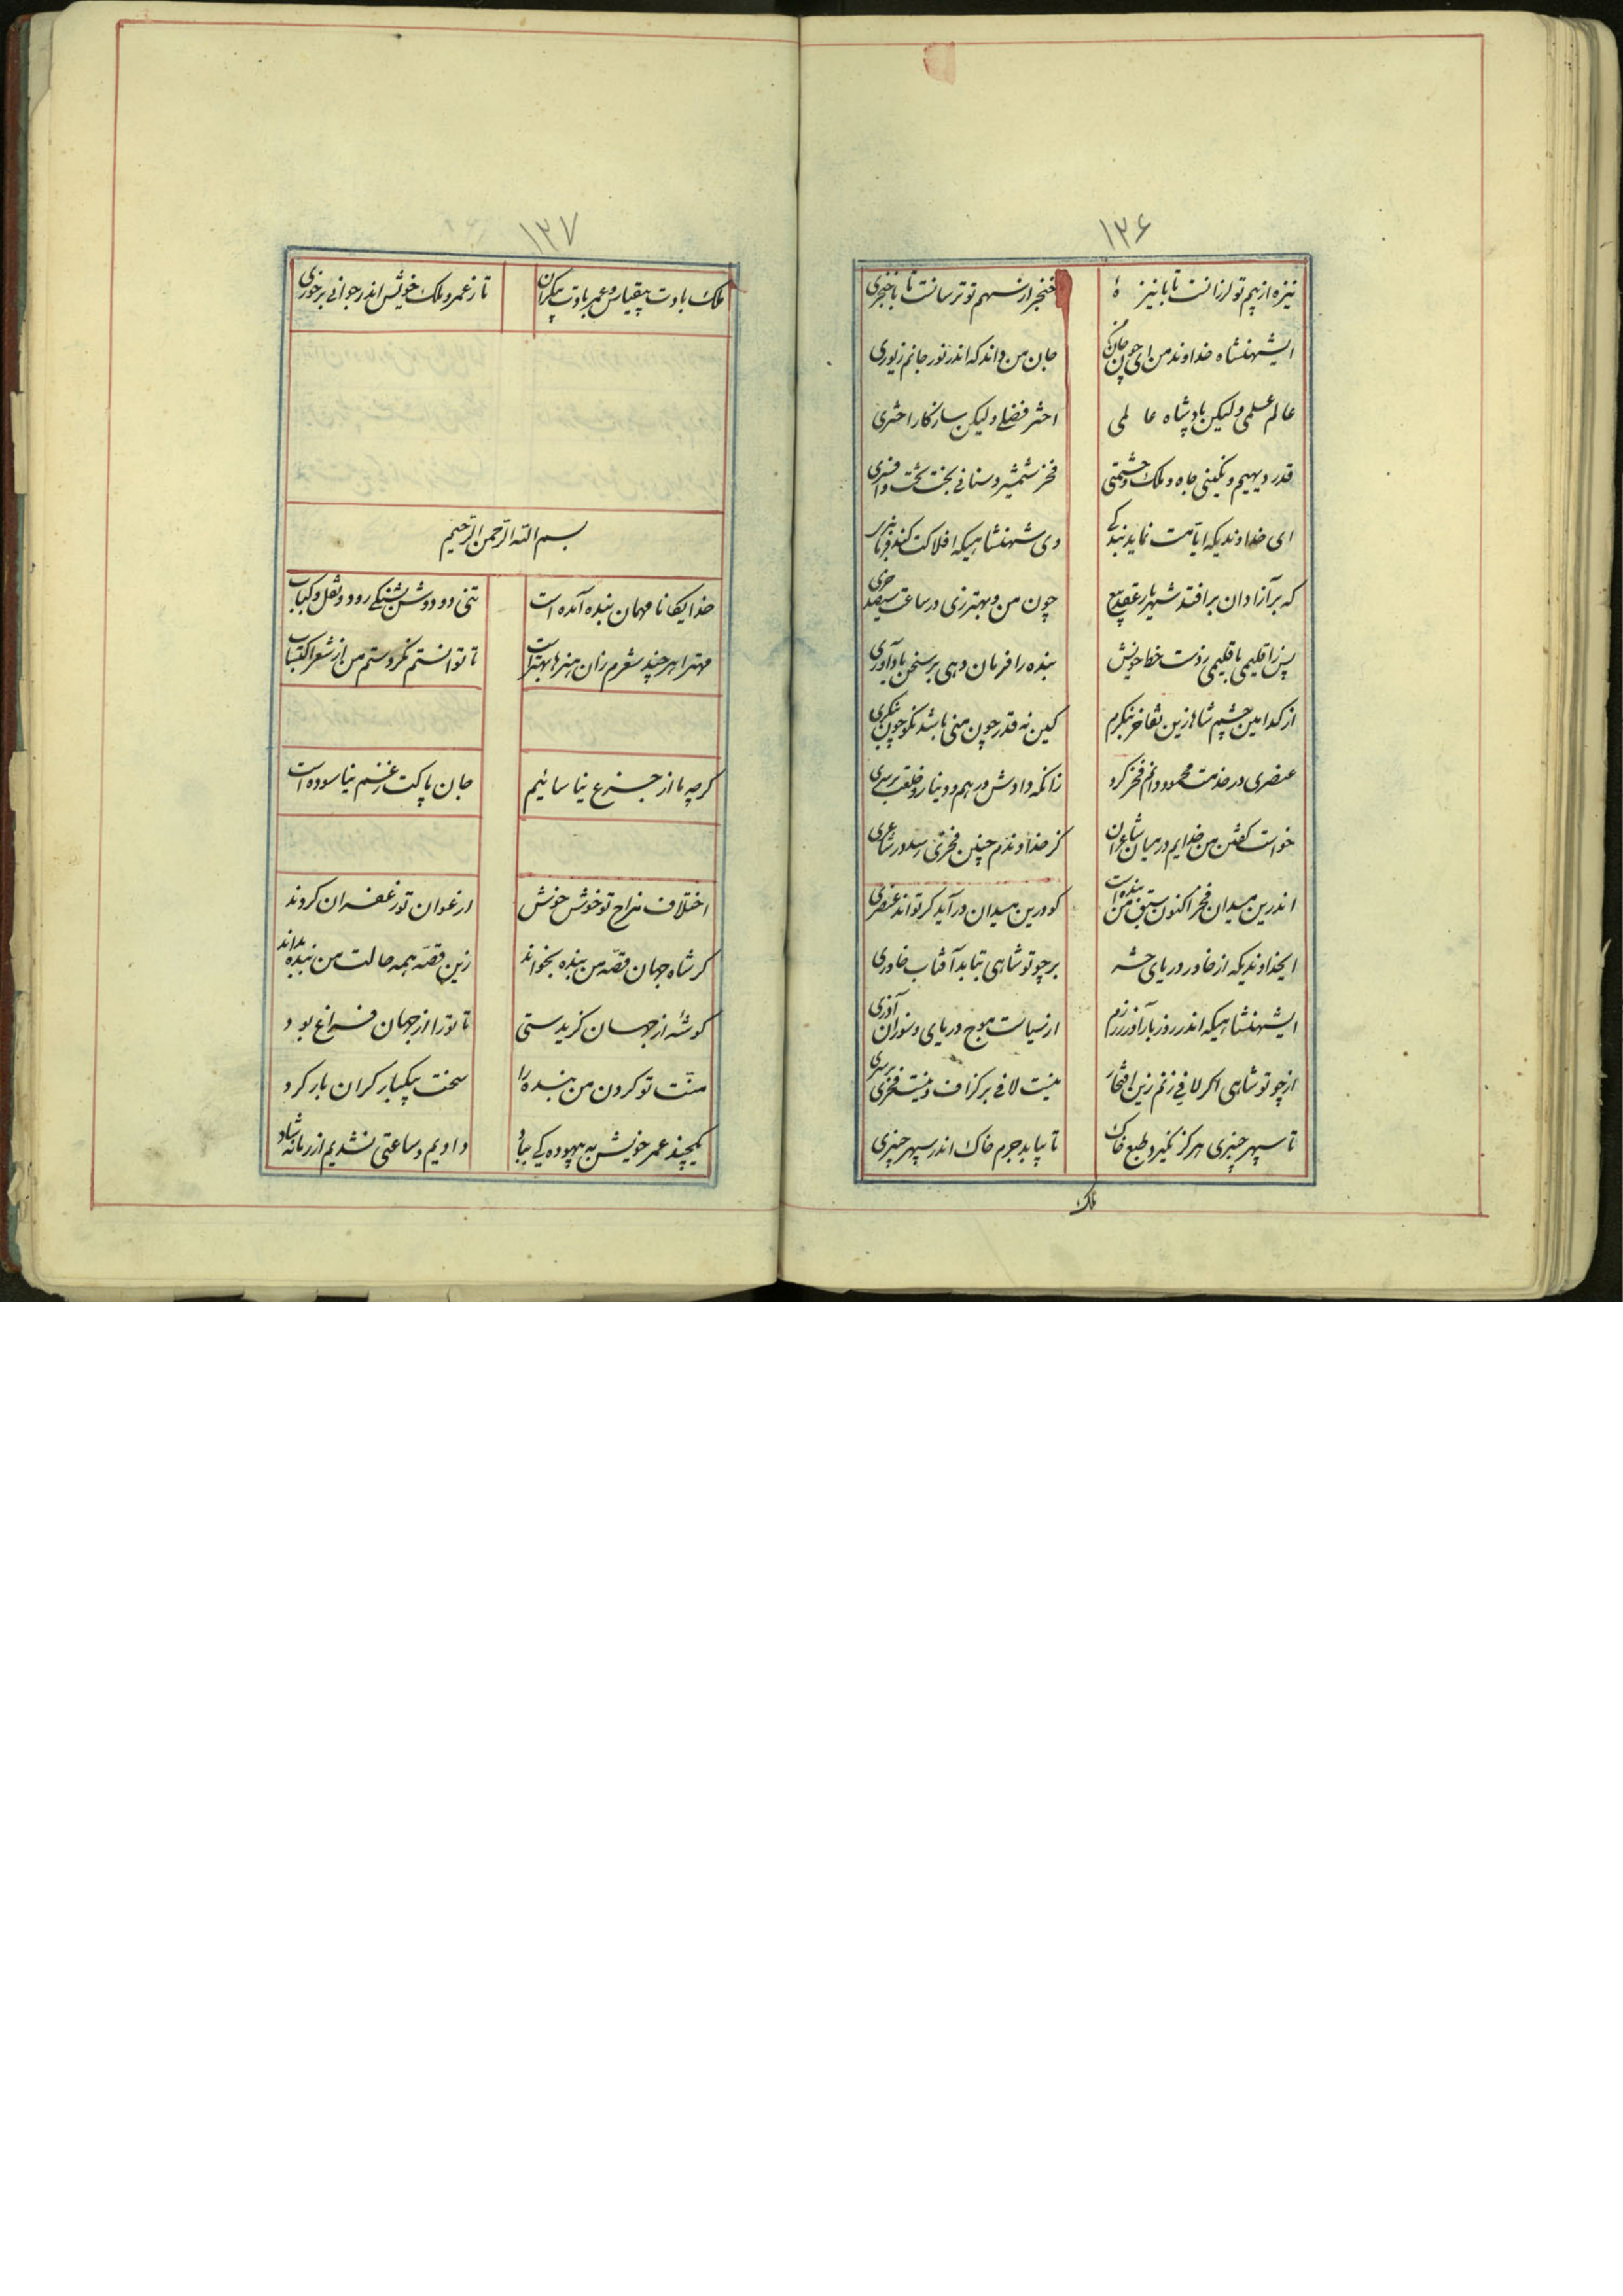 ۱۳۶
نیزه از بیم تو لرزانست تا با نیزهٔ خنجر از سهم تو ترسانست تا با خنجری
ایشهنشاه خداوند من ای چون جان جان من داند که اندر نور جانم زیوری
عالم علمی ولیکن پادشاه عالمی اختر فضلی ولیکن سازکار اختری
قدر دیهیم و نگینی جاه و ملک و حشمتی فخر شمشیر و سنانی بخت تخت و افسری
ای خداوندیکه ایامت نماید بندگی وی شهنشاهیکه افلاکت کند فرمانبری
که بر آزادان برافتد شهریار چون من و بهتر زی در ساعت سیصد خری
پس ز اقلیمی باقلیمی زدست خط خویش بنده را فرمان دهی بر سخن یادآوری
از کدامین چشم شاها زین تفاخر بنگرم کین نه قدر چون منی باشد نکو چون بنگری
عنصری در خدمت محمود دایم فخر کرد زانکه دادش درهم و دینار و خلعت بر سری
خواست گفتن من خدایم در میان شاعران کز خداوندم چنین فخری رسد در شاعری
اندرین میدان فخر اکنون سبق من بنده راست کو درین میدان درآید گر تواند عنصری
ایخداوندیکه از خاور در یای حشر بر چو تو شاهی نتابد آفتاب خاوری
ایشهنشاهیکه اندر روز بار اندر رزم از سیاست موج دریای و سوزان آذری
از چو تو شاهی اگر لافی زنم زین افتخار نیست لافی بر گزاف و نیست فخری بر سری
تا سپهر چنبری هرگز نگیرد طبع خاک تا نیابد جرم خاک اندر سپهر چنبری
ملک
۱۳۷
ملک بادت بیقیاس و عمر بادت بیکران تا ز عمر و ملک خویش اندر جوانی برخوری
بسم الله الرحمن الرحیم
خدایگانا مهمان بنده آمده است تنی دو دوش شنبکی رود و نقل و کباب
مهترا هر چند شعرم زان هنرها بهتر است تا توانستم نکردستم من از شعر اکتساب
گرچه ما از جزع نیاسائیم جان پاکت ز غم نیاسوده است
اختلاف مزاج تو خوش خوش ارغوان تو زعفران کردند
گر شاه جهان قصهٔ من بنده بخواند زین قصه همه حالت من بنده بداند
گوشهٔ از جهان گزیدستی تا ترا از جهان فراغ بود
منت تو گردن من بنده را سخت بیکبار گران بار کرد
یکچند عمر خویش به بیهودگی بباد دادیم و ساعتی نشدیم از زمانه شاد